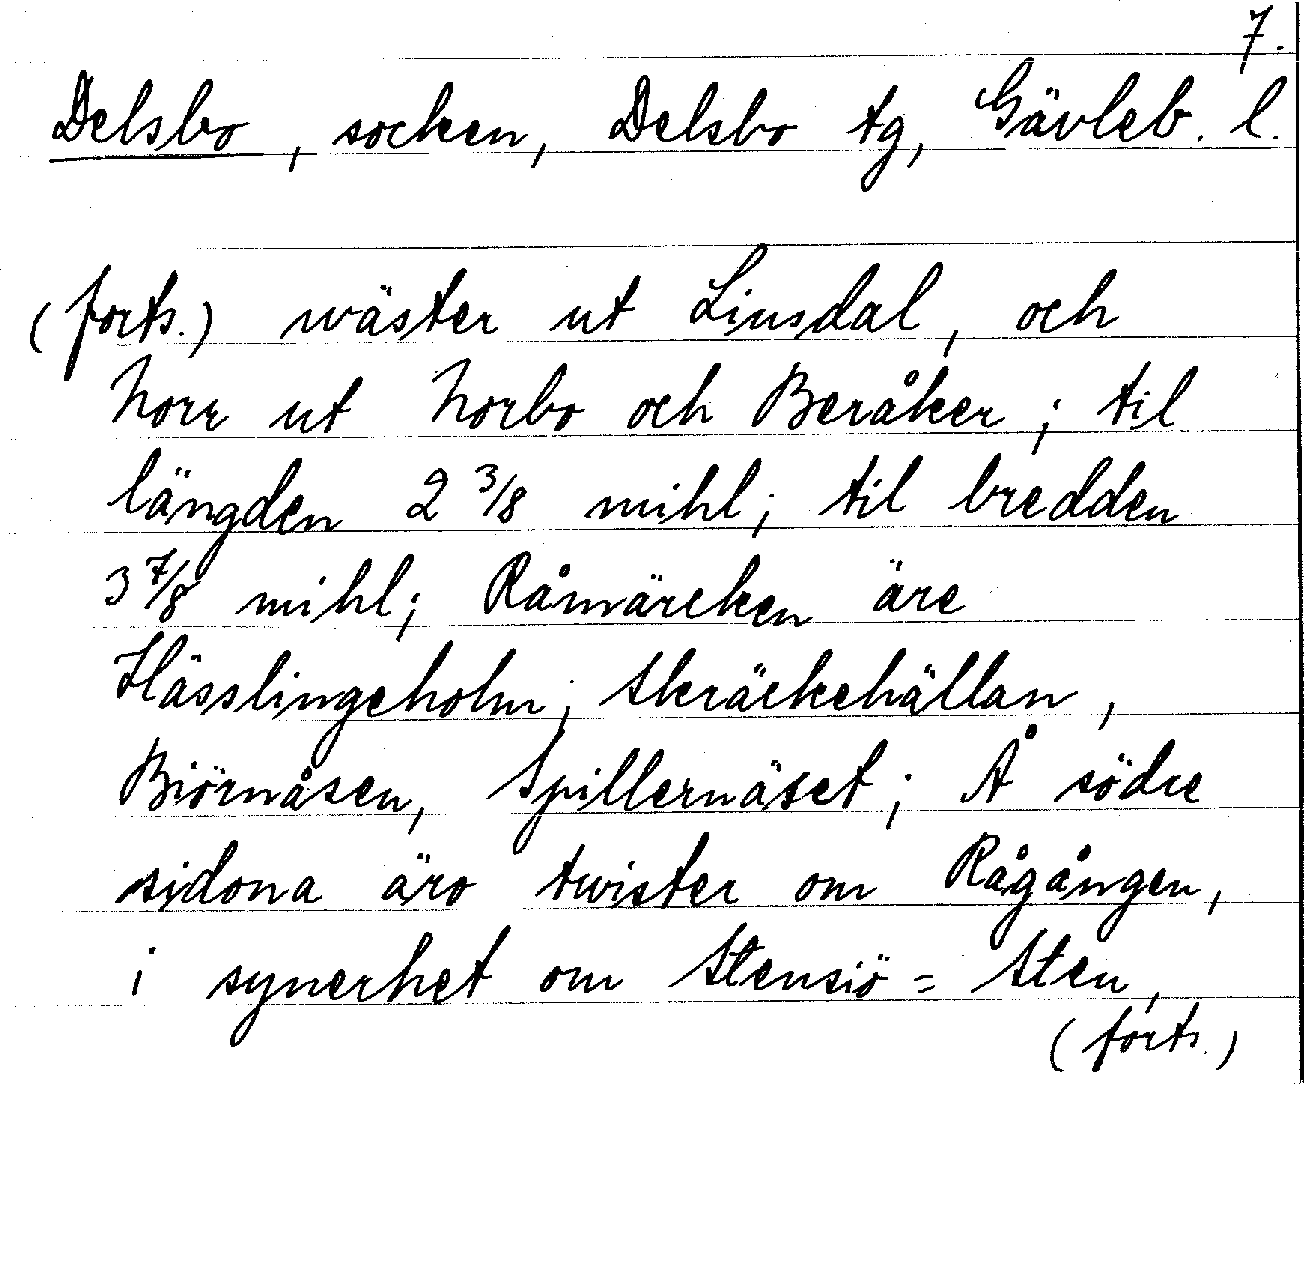 7.
Delsbo, socken, Delsbo tg, Gävleb. l.
(forts.) wäster ut Liusdal, och
Norr ut Norbo och Beråker; til
längden 2 3/8 mihl; til bredden
3 7/8 mihl; Råmärcken äre
Hässlingeholm; Skräckehällan,
Biörnåsen, Spillernäset; Å södre
sidona äro twister om Rågången,
i synerhet om Stensiö= Sten,
(forts.)